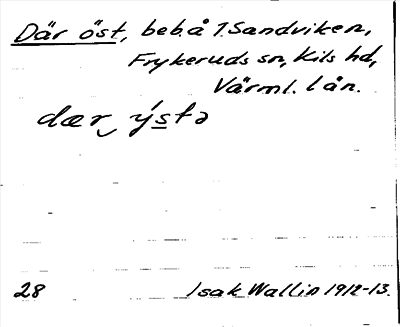 Där öst, beb. å 1. Sandviken,
Frykeruds sn, Kils hd,
Värml. län.
dær ýstə
28 Isak Wallin 1912-13.